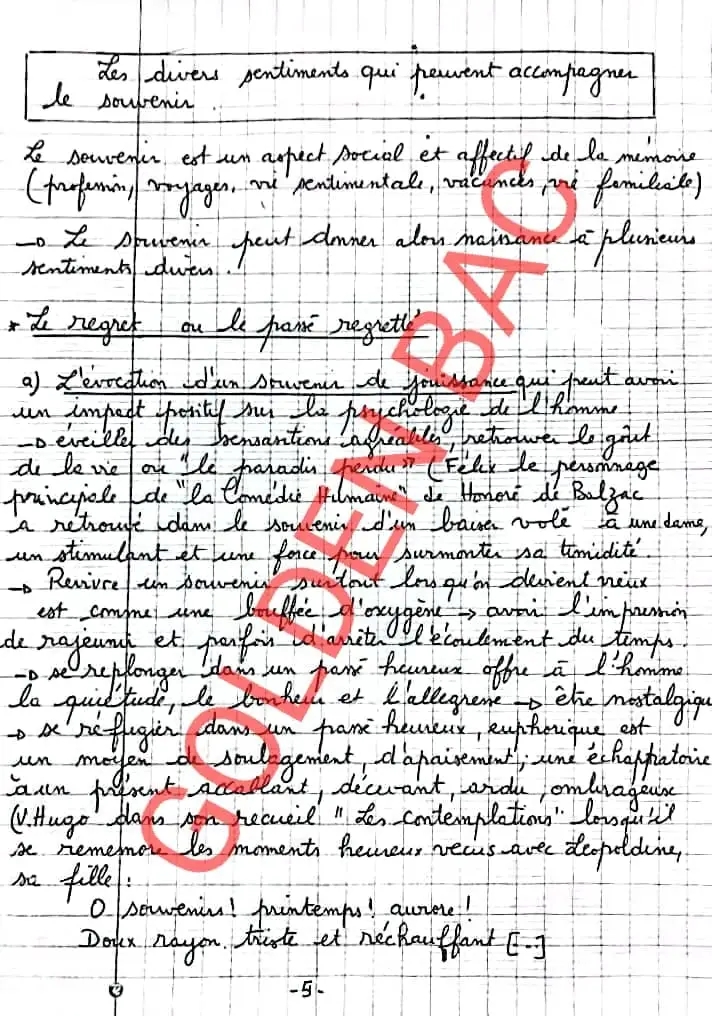 Les divers sentiments qui peuvent accompagner
le souvenir.
Le souvenir est un aspect social et affectif de la mémoire
(profession, voyages, vie sentimentale, vacances, vie familiale)
→ Le souvenir peut donner alors naissance à plusieurs
sentiments divers.
* Le regret ou le passé regretté
a) L'évocation d'un souvenir de jouissance qui peut avoir
un impact positif sur la psychologie de l'homme
→ éveiller des sensastions agréables, retrouver le goût
de la vie ou "le paradis perdu" (Félix le personnage
principale de "la Comédie Humaine" de Honoré de Balzac
a retrouvé dans le souvenir d'un baiser volé à une dame,
un stimulant et une force pour surmonter sa timidité.
→ Revivre un souvenir surtout lorsqu'on devient vieux
est comme une bouffée d'oxygène → avoir l'impression
de rajeunir et parfois d'arrêter l'écoulement du temps.
→ se replonger dans un passé heureux offre à l'homme
la quiétude, le bonheur et l'allégresse → être nostalgiqu
→ se réfugier dans un passé heureux, euphorique est
un moyen de soulagement, d'apaisement, une échappatoire
à un présent accablant, décevant, ardu, ombrageux
(V. Hugo dans son recueil "Les contemplations" lorsqu'il
se rememore les moments heureux vécus avec Léopoldine,
sa fille :
O souvenirs! printemps! aurore!
Doux rayon triste et réchauffant [-]
-5-
GOLDEN BAC